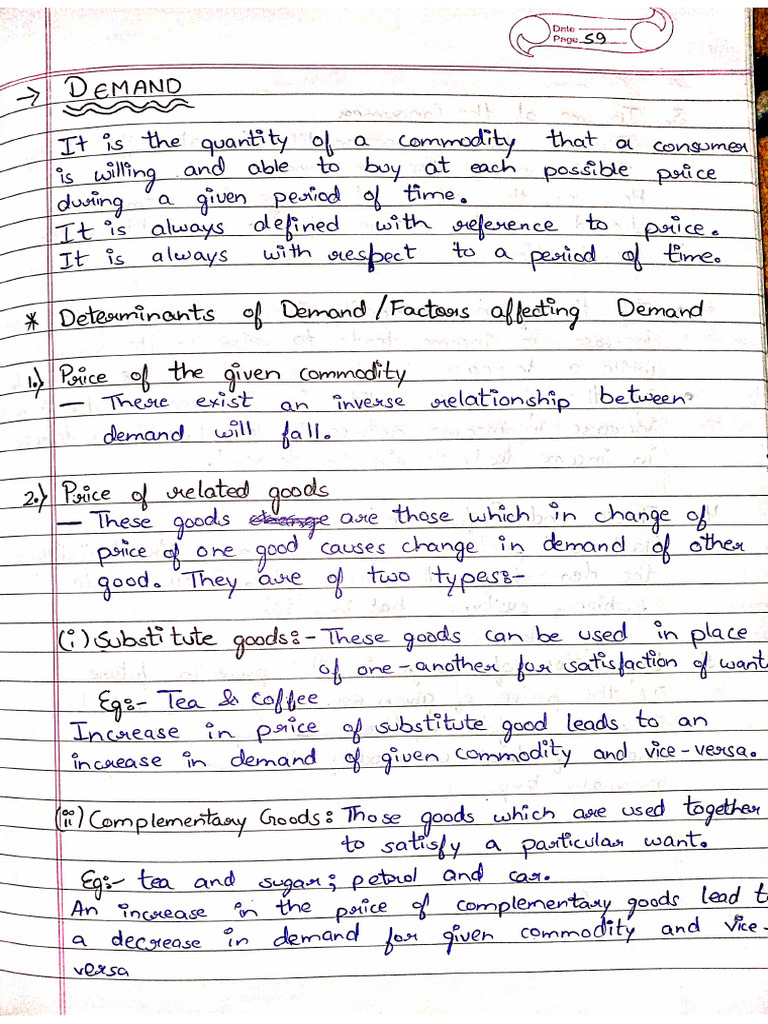 Date
Page 59
→ DEMAND
It is the quantity of a commodity that a consumer
is willing and able to buy at each possible price
during a given period of time.
It is always defined with reference to price.
It is always with respect to a period of time.
* Determinants of Demand / Factors affecting Demand
1.) Price of the given commodity
— There exist an inverse relationship between
demand will fall.
2.) Price of related goods
— These goods change are those which in change of
price of one good causes change in demand of other
good. They are of two types:-
(i) Substitute goods:- These goods can be used in place
of one-another for satisfaction of want
Eg:- Tea & coffee
Increase in price of substitute good leads to an
increase in demand of given commodity and vice-versa.
(ii) Complementary Goods: Those goods which are used together
to satisfy a particular want.
Eg:- tea and sugar; petrol and car.
An increase in the price of complementary goods lead t
a decrease in demand for given commodity and vice-
versa